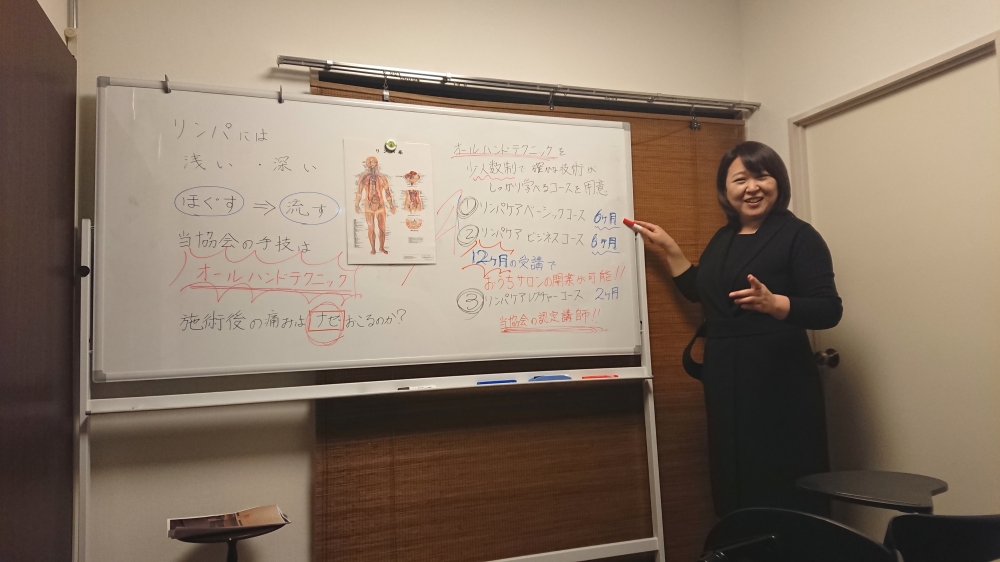 リンパには
浅い・深い
ほぐす ⇒ 流す
当協会の手技は
オールハンドテクニック
施術後の痛みはナゼおこるのか?
オールハンドテクニックを
少人数制で確かな技術が
しっかり学べるコースを用意
① リンパケアベーシックコース 6ヶ月
② リンパケアビジネスコース 6ヶ月
12ヶ月の受講で
おうちサロンの開業が可能!!
③ リンパケアレクチャーコース 2ヶ月
当協会の認定講師!!